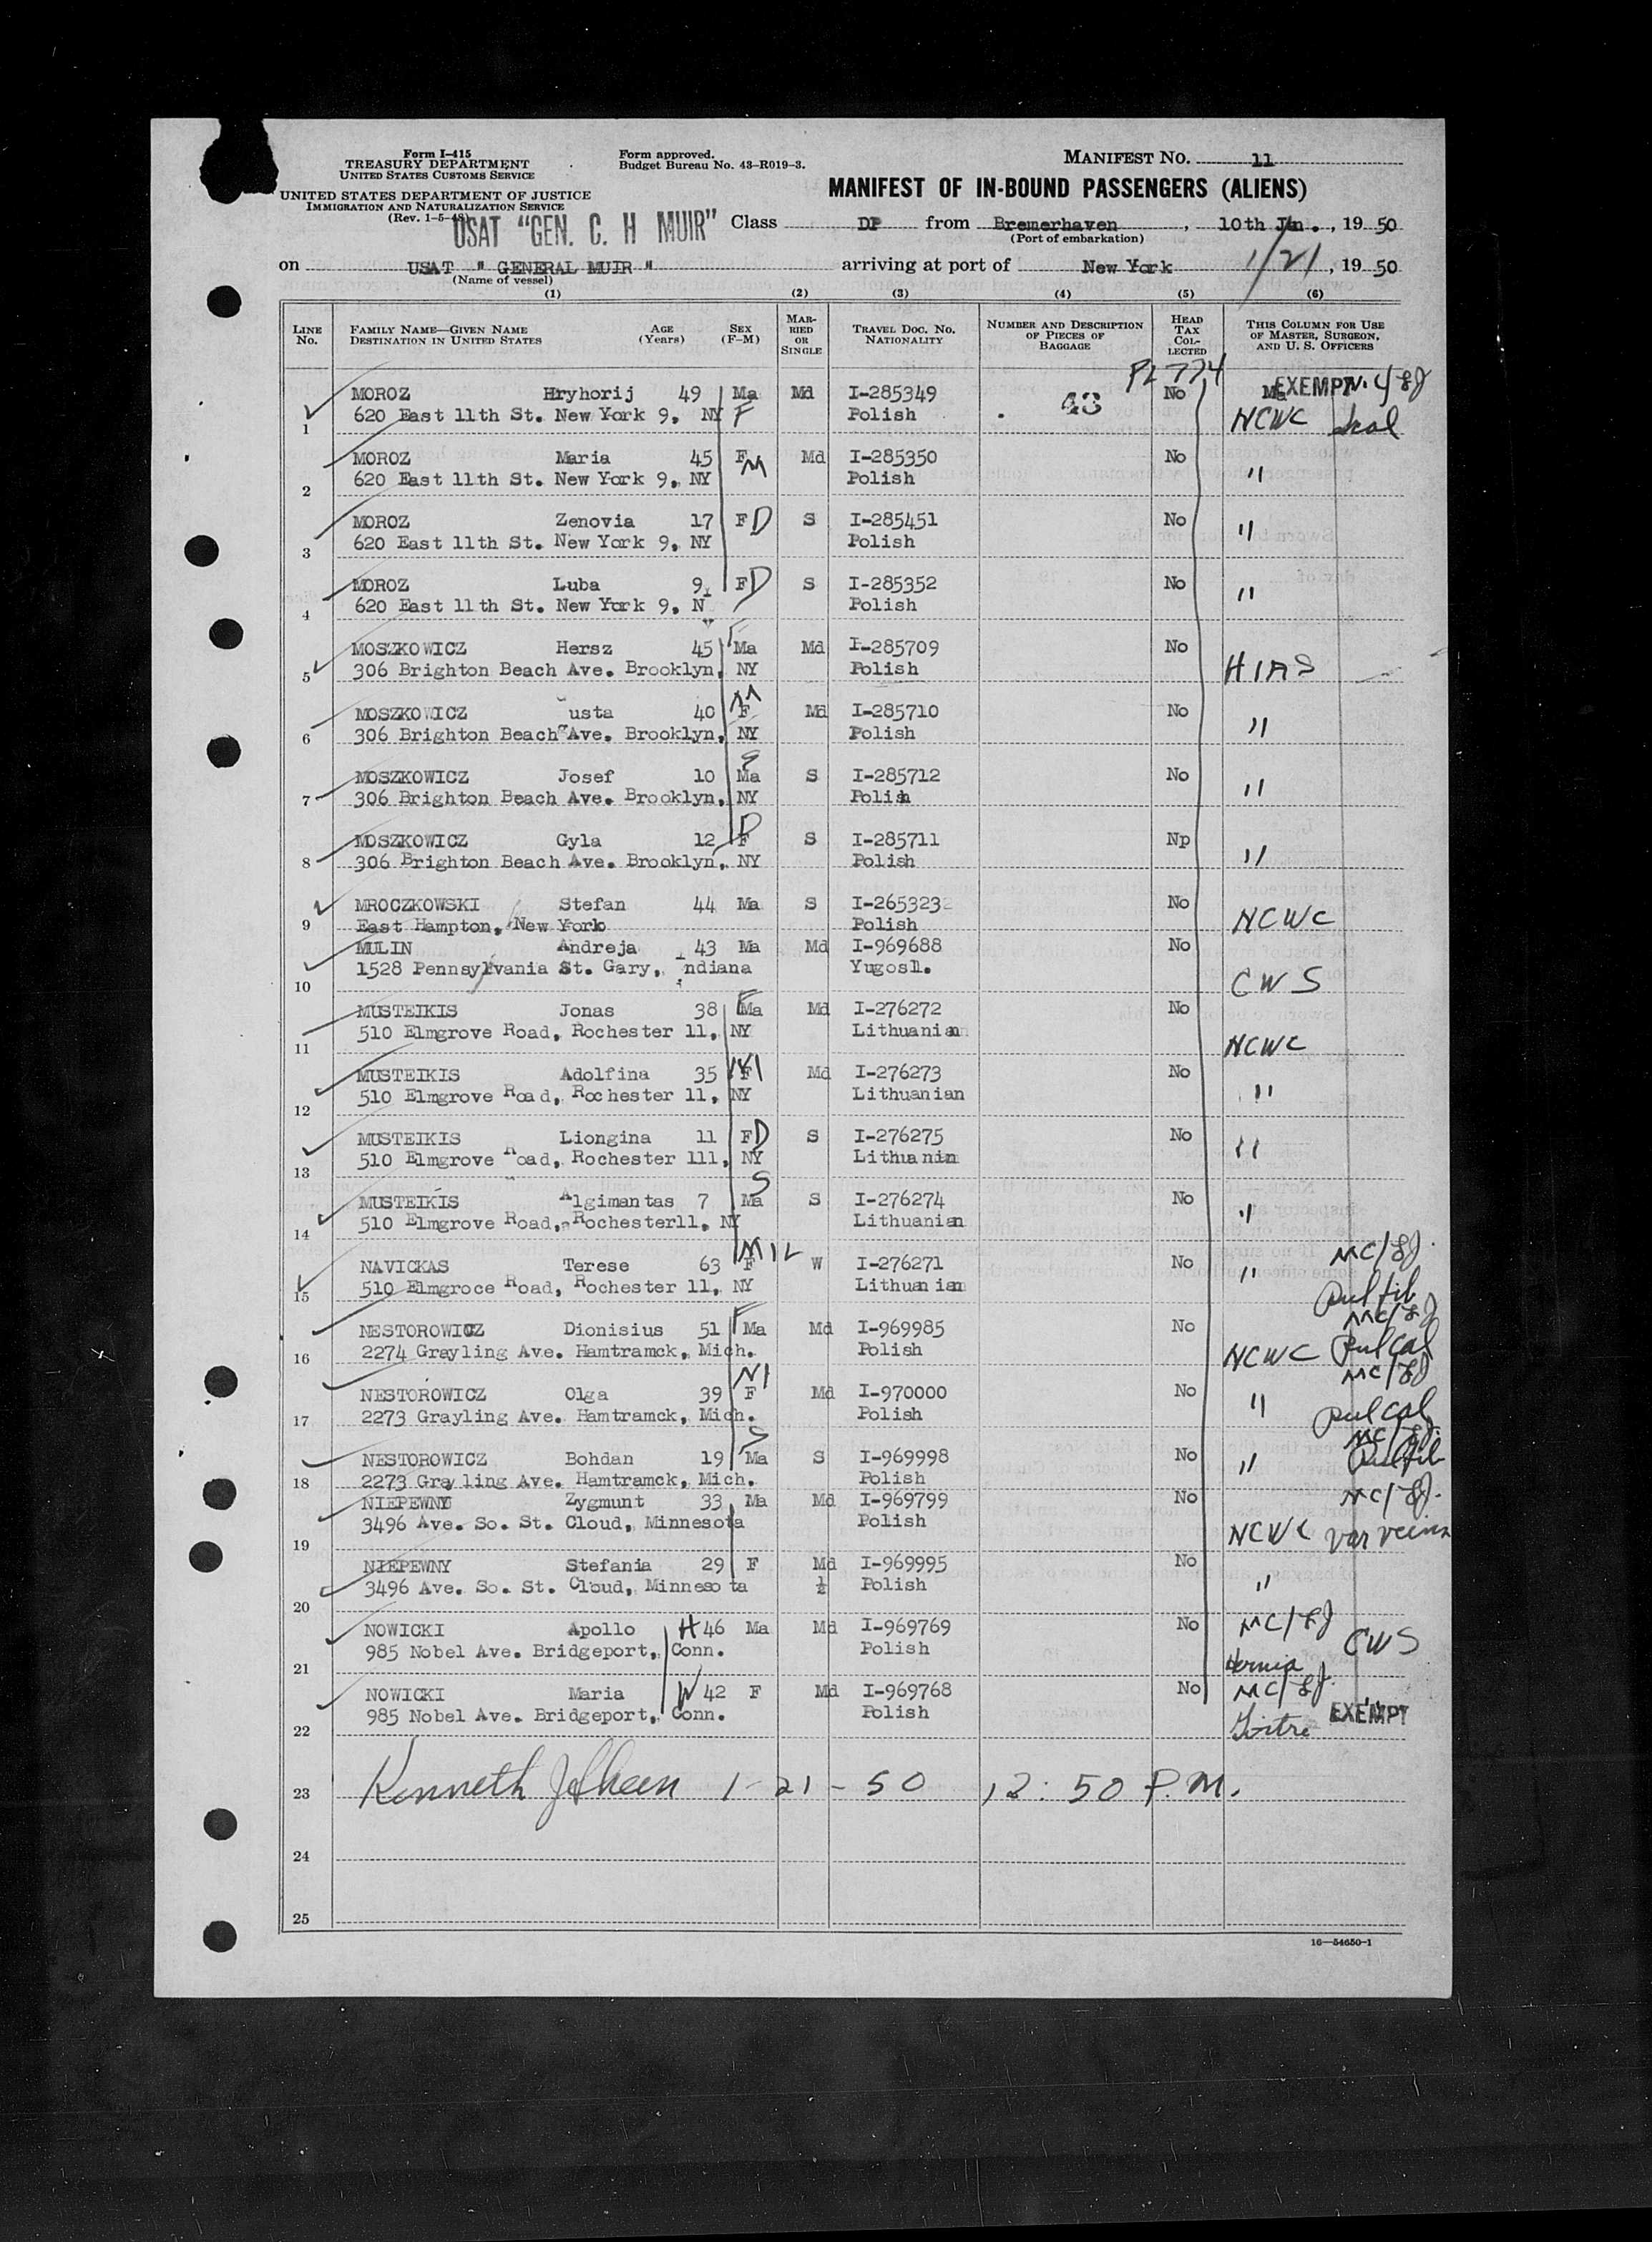 Form I-415
TREASURY DEPARTMENT
UNITED STATES CUSTOMS SERVICE
UNITED STATES DEPARTMENT OF JUSTICE
IMMIGRATION AND NATURALIZATION SERVICE
(Rev. 1-5-48)
Form approved.
Budget Bureau No. 43-R019-3.
MANIFEST NO. 11
MANIFEST OF IN-BOUND PASSENGERS (ALIENS)
USAT "GEN. C. H MUIR" Class DP from Bremerhaven, 10th Jan., 19 50
(Port of embarkation)
on USAT " GENERAL MUIR " arriving at port of New York 1/21, 19 50
(Name of vessel)
(1) (2) (3) (4) (5) (6)
LINE No. FAMILY NAME—GIVEN NAME DESTINATION IN UNITED STATES AGE (Years) SEX (F-M) MARRIED OR SINGLE TRAVEL DOC. NO. NATIONALITY NUMBER AND DESCRIPTION OF PIECES OF BAGGAGE HEAD TAX COLLECTED THIS COLUMN FOR USE OF MASTER, SURGEON, AND U. S. OFFICERS
PL 774
MOROZ Hryhorij 49 Ma Md I-285349 43 No EXEMPT
1 620 East 11th St. New York 9, NY F Polish NCWC
MOROZ Maria 45 F M Md I-285350 No
2 620 East 11th St. New York 9, NY Polish "
MOROZ Zenovia 17 F D S I-285451 No
3 620 East 11th St. New York 9, NY Polish "
MOROZ Luba 9 F D S I-285352 No
4 620 East 11th St. New York 9, N Polish "
MOSZKOWICZ Hersz 45 F Ma Md I-285709 No
5 306 Brighton Beach Ave. Brooklyn, NY Polish HIAS
MOSZKOWICZ usta 40 M F Md I-285710 No
6 306 Brighton Beach Ave. Brooklyn, NY Polish "
MOSZKOWICZ Josef 10 S Ma S I-285712 No
7 306 Brighton Beach Ave. Brooklyn, NY Polish "
MOSZKOWICZ Gyla 12 D F S I-285711 Np
8 306 Brighton Beach Ave. Brooklyn, NY Polish "
MROCZKOWSKI Stefan 44 Ma S I-2653232 No
9 East Hampton, New York Polish NCWC
MULIN Andreja 43 Ma Md I-969688 No
10 1528 Pennsylvania St. Gary, Indiana Yugosl. CWS
MUSTEIKIS Jonas 38 F Ma Md I-276272 No
11 510 Elmgrove Road, Rochester 11, NY Lithuanian NCWC
MUSTEIKIS Adolfina 35 M F Md I-276273 No
12 510 Elmgrove Road, Rochester 11, NY Lithuanian "
MUSTEIKIS Liongina 11 F D S I-276275 No
13 510 Elmgrove Road, Rochester 111, NY Lithuanin "
MUSTEIKIS Algimantas 7 S Ma S I-276274 No
14 510 Elmgrove Road, Rochester11, NY Lithuanian "
NAVICKAS Terese 63 MIL F W I-276271 No MC/
15 510 Elmgroce Road, Rochester 11, NY Lithuanian " Pul fib
NESTOROWICZ Dionisius 51 F Ma Md I-969985 No MC/
16 2274 Grayling Ave. Hamtramck, Mich. Polish NCWC Pul Cal
NESTOROWICZ Olga 39 M F Md I-970000 No MC/
17 2273 Grayling Ave. Hamtramck, Mich. Polish " Pul cal
NESTOROWICZ Bohdan 19 S Ma S I-969998 No MC/
18 2273 Grayling Ave. Hamtramck, Mich. Polish " Pul fib
NIEPEWNY Zygmunt 33 Ma Md I-969799 No MC/
19 3496 Ave. So. St. Cloud, Minnesota Polish NCWC Var veins
NIEPEWNY Stefania 29 F Md I-969995 No
20 3496 Ave. So. St. Cloud, Minnesota ½ Polish "
NOWICKI Apollo H 46 Ma Md I-969769 No MC/ CWS
21 985 Nobel Ave. Bridgeport, Conn. Polish Hernia
NOWICKI Maria W 42 F Md I-969768 No MC/ "
22 985 Nobel Ave. Bridgeport, Conn. Polish Goitre EXEMPT
23 Kenneth 1-21-50 12:50 P.M.
24
25
16—54650-1